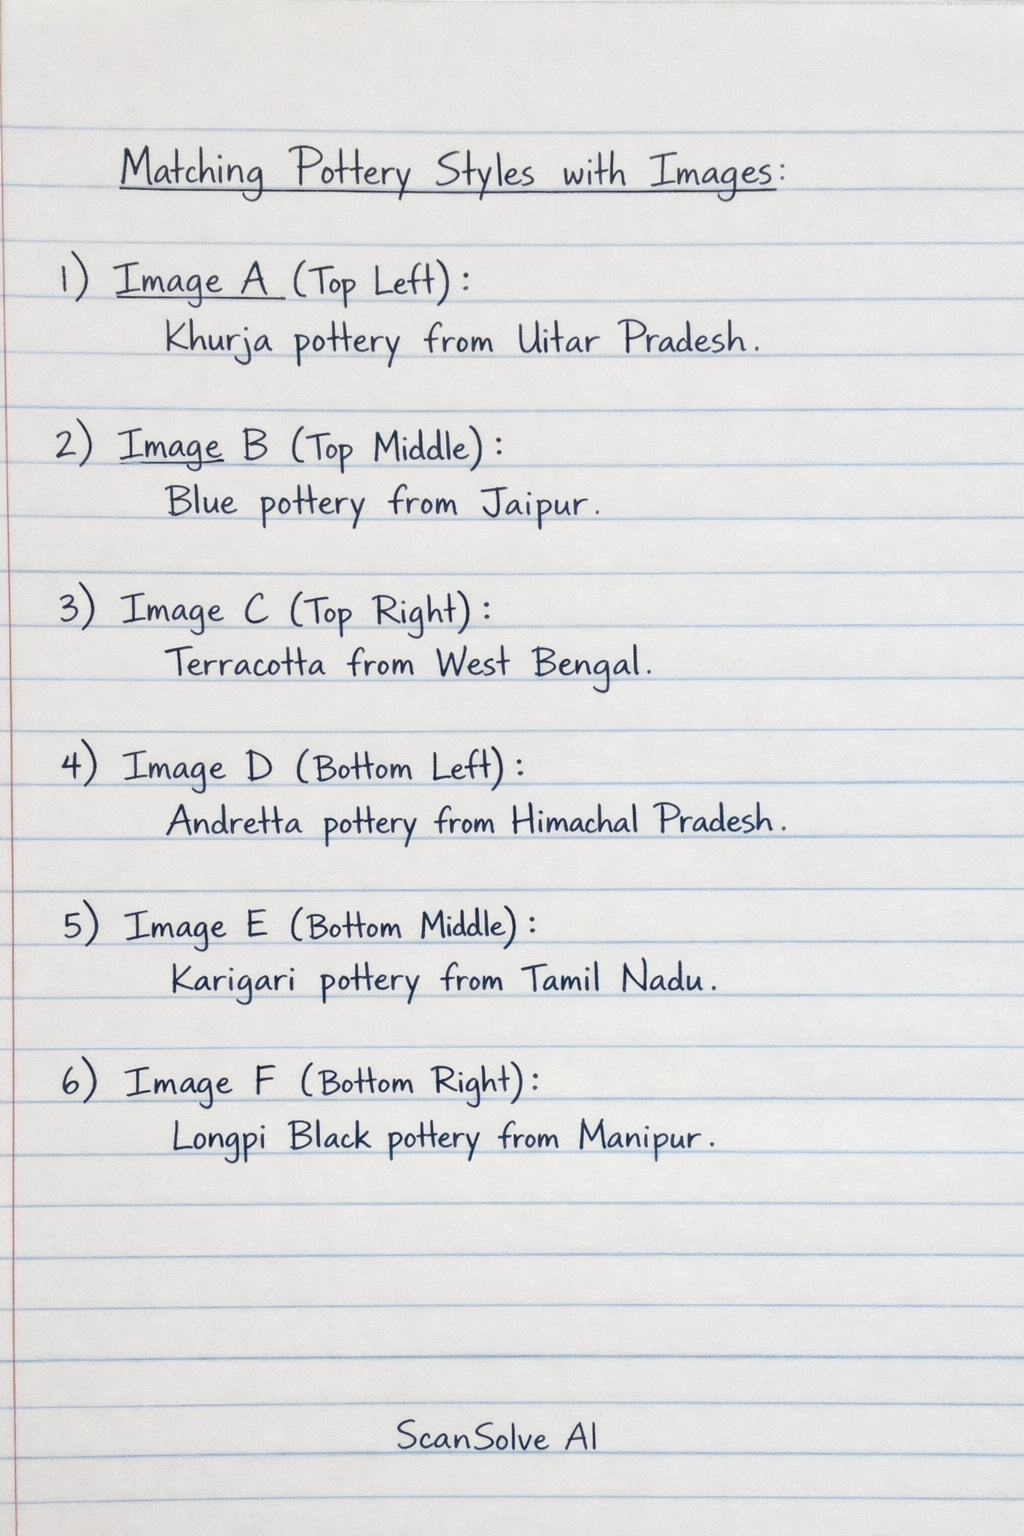 Matching Pottery Styles with Images:
1) Image A (Top Left):
Khurja pottery from Uitar Pradesh.
2) Image B (Top Middle):
Blue pottery from Jaipur.
3) Image C (Top Right):
Terracotta from West Bengal.
4) Image D (Bottom Left):
Andretta pottery from Himachal Pradesh.
5) Image E (Bottom Middle):
Karigari pottery from Tamil Nadu.
6) Image F (Bottom Right):
Longpi Black pottery from Manipur.
ScanSolve AI